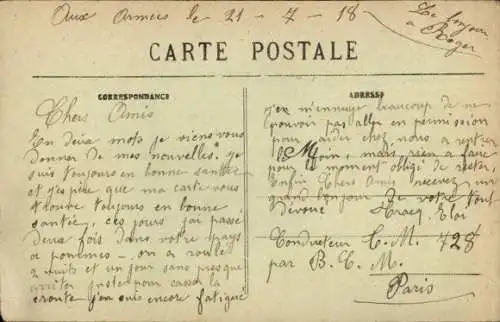 Aux Armées le 21 - 7 - 18 -
Le bonjour
a Roger
CARTE POSTALE
CORRESPONDANCE
ADRESSE
Chers Amis
En deux mots je viens vous
donner de mes nouvelles. je
suis toujours en bonne santée
et j'espère que ma carte vous
trouve toujours en bonne
santée, ces jours j'ai passé
deux fois dans votre pays
a pommes - on a roulé
2 nuits et un jour sans presque
arriter juste pour casser la
croute j'en suis encore fatigué
j'en m'ennuye beaucoup de ne
pouvoir pas aller en permission
pour aider chez nous a rentrer
le foin, mais rien a faire
pour le moment obligé de rester,
enfin Chers Amis recevez un
grand bonjour de votre tout
dévoué Eloi
Conducteur T. M. 728
par B. C. M.
Paris